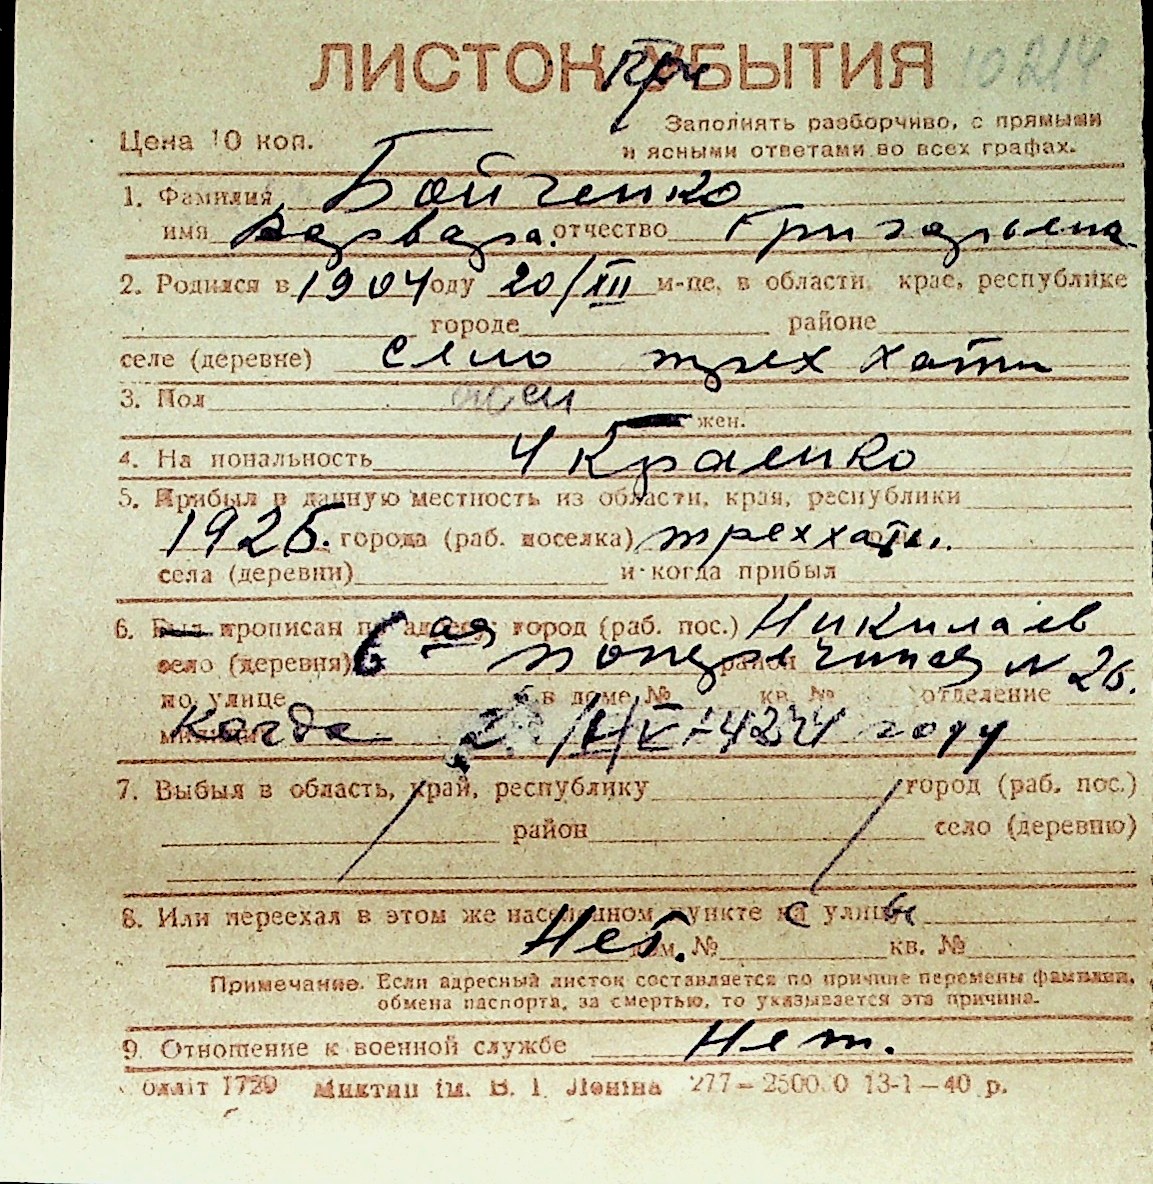 ЛИСТОК УБЫТИЯ 10214
При
Цена 10 коп.
Заполнять разборчиво, с прямыми
и ясными ответами во всех графах.
1. Фамилия Бойченко
имя Варвара. отчество Григорьевна
2. Родился в 1904 году 20/XII м-це, в области, крае, республике
городе районе
селе (деревне) село трех хати
3. Пол жен
жен.
4. На иональность Украенко
5. Прибыл в данную местность из области, края, республики
1925. города (раб. поселка) треххати.
села (деревни) и когда прибыл
6. Был прописан по адресу: город (раб. пос.) Николаев
село (деревня) 6ая попречная район N 26.
по улице в доме № кв. № отделение
милиции Когда году
7. Выбыл в область, край, республику город (раб. пос.)
район село (деревню)
8. Или переехал в этом же населенном пункте на улицу
Нет. дом. № кв. №
Примечание. Если адресный листок составляется по причине перемены фамилии,
обмена паспорта, за смертью, то указывается эта причина.
9. Отношение к военной службе Нет.
блліт 1729 Миктип ім. В. І. Леніна 277–2500 0 13-1–40 р.